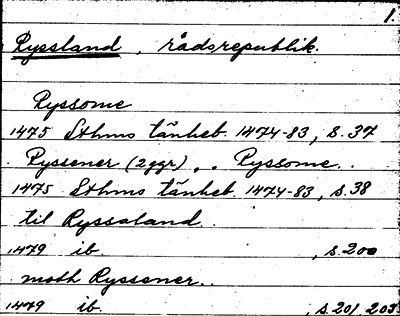 1.
Ryssland, rådsrepublik.
Ryssome
1475 Sthms tänkeb. 1474-83, s. 37
Ryssener (2ggr) . . Ryssome . .
1475 Sthms tänkeb. 1474-83, s. 38
til Ryssaland .
1479 ib. , s. 200
moth Ryssener . .
1479 ib. , s. 201, 203